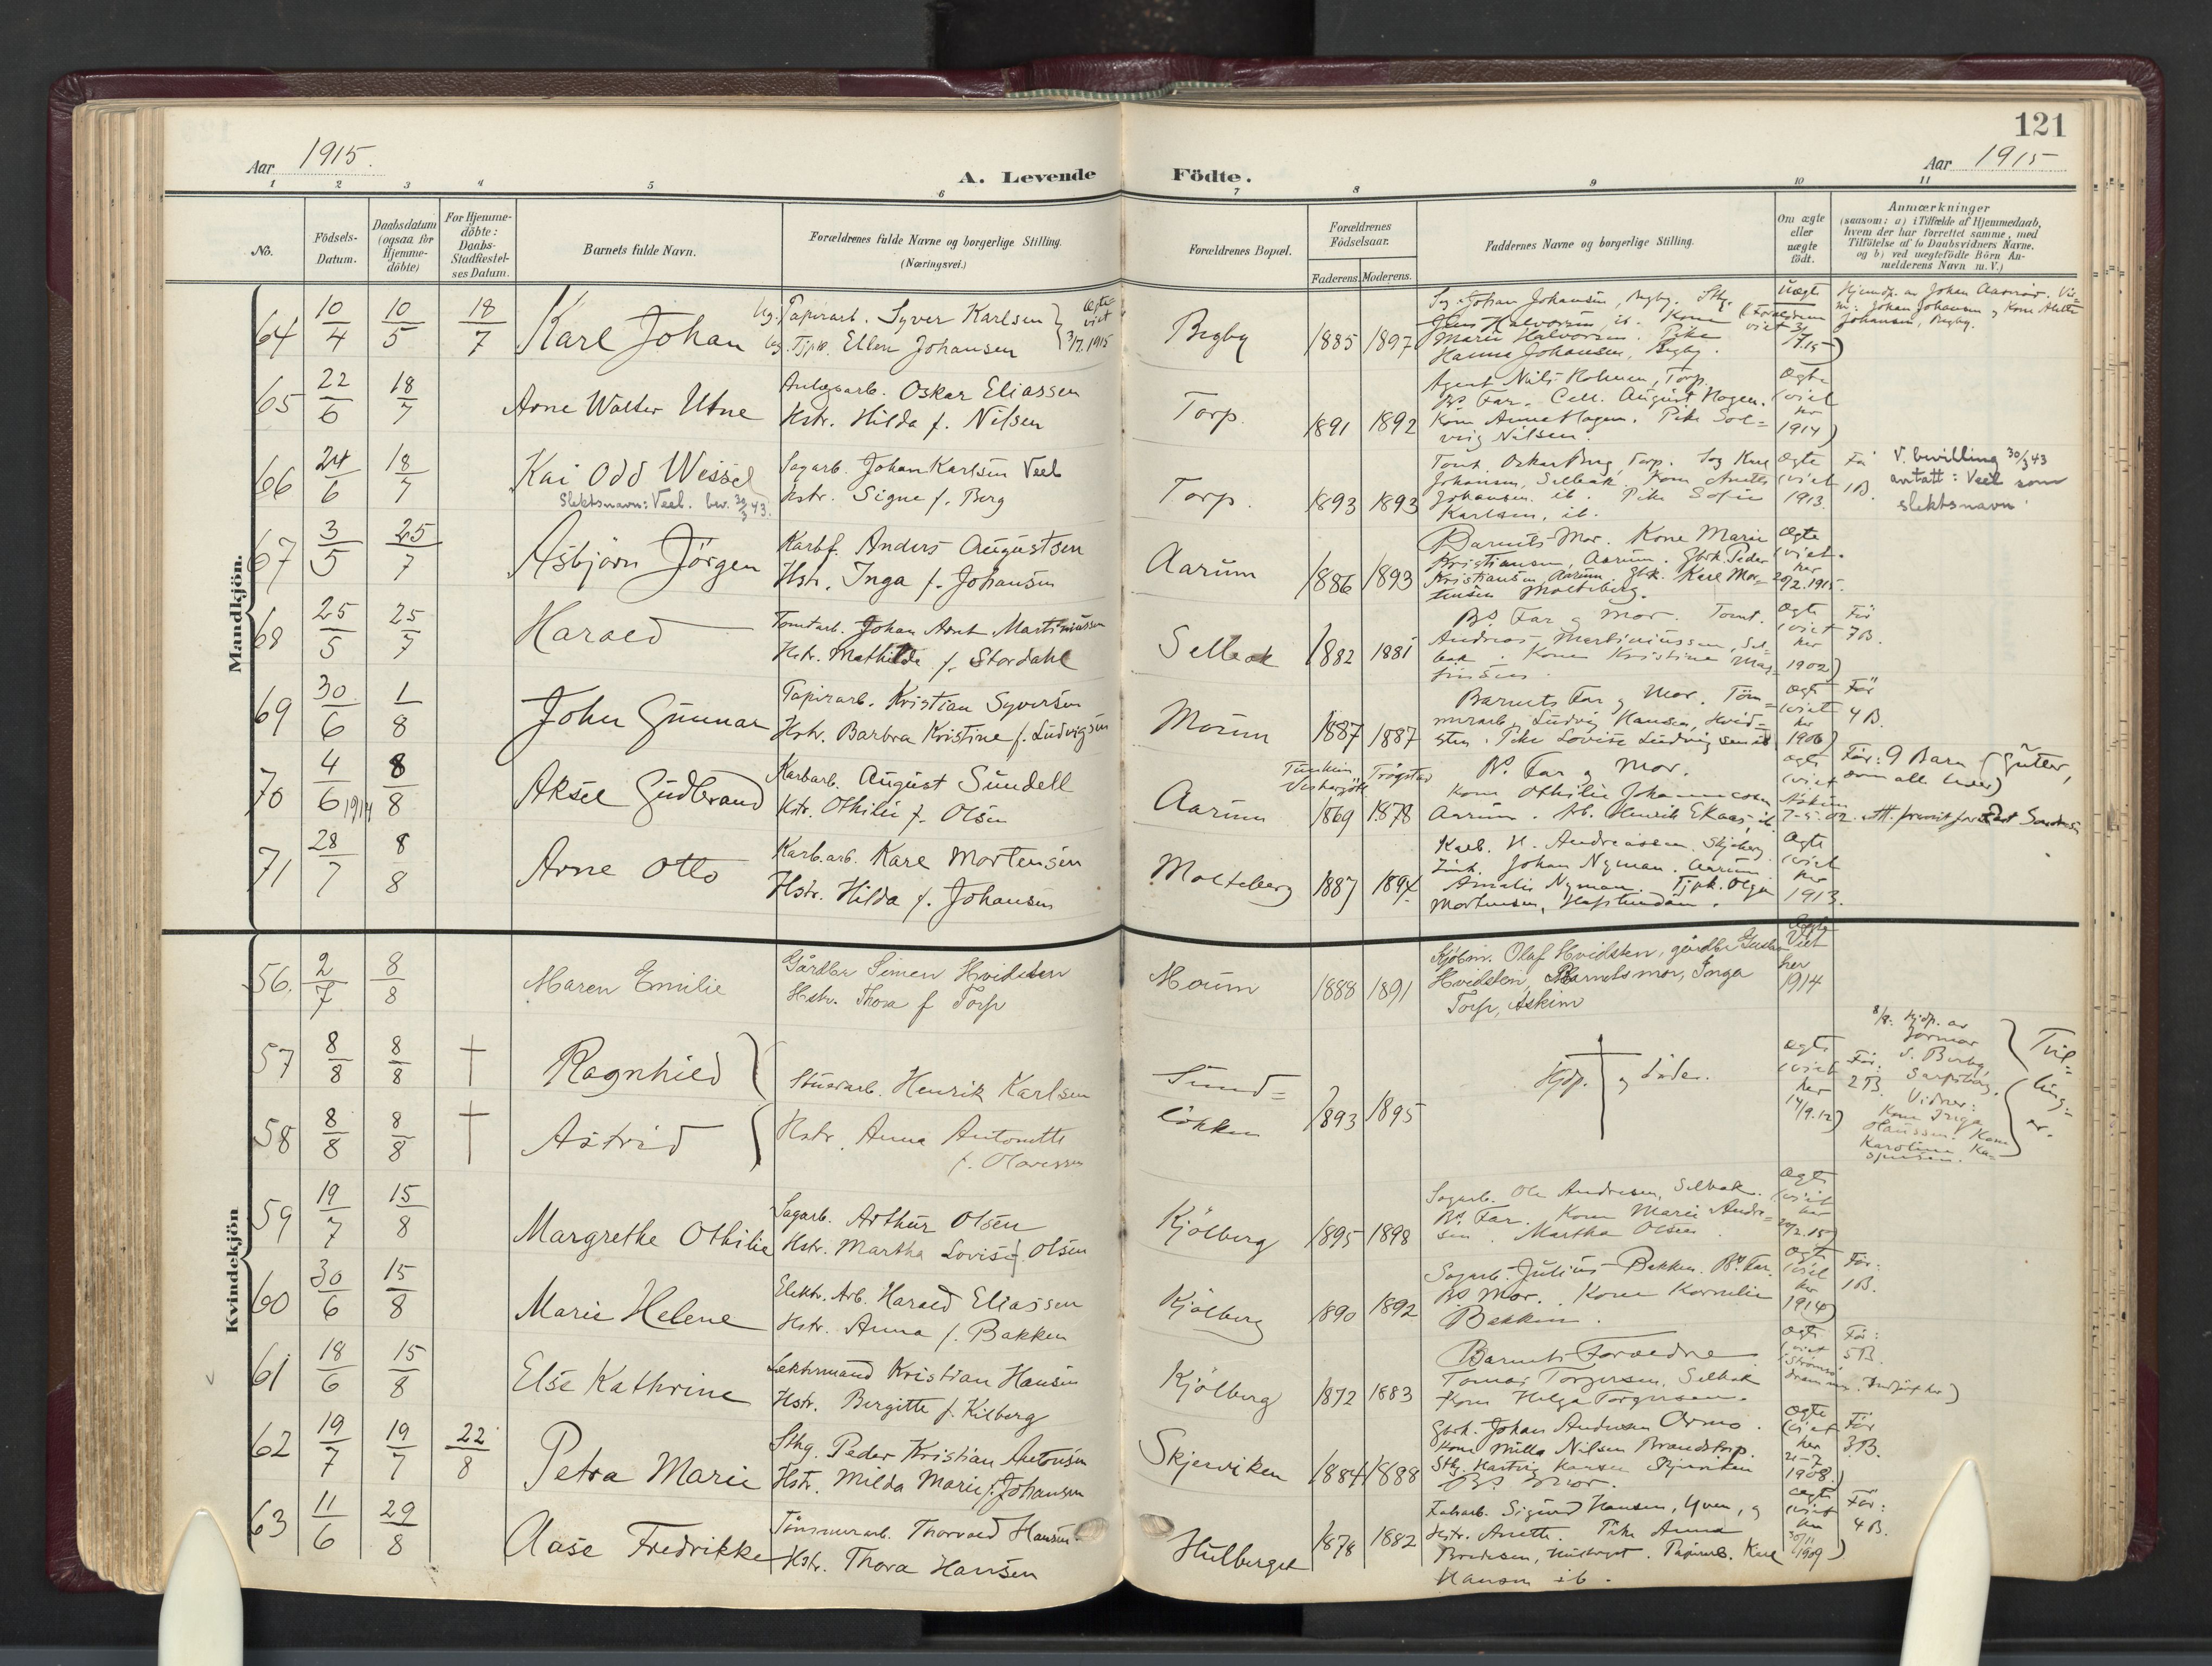 121
Aar 1915.
Aar 1915
A. Levende Födte.
1 2 3 4 5 6 7 8 9 10 11
No.
Födsels-
Datum.
Daabsdatum
(ogsaa for
Hjemme-
döbte)
For Hjemme-
döbte:
Daabs-
Stadfæstel-
ses Datum.
Barnets fulde Navn.
Forældrenes fulde Navne og borgerlige Stilling.
(Næringsvei.)
Forældrenes Bopæl.
Forældrenes
Födselsaar.
Faderens. Moderens.
Faddernes Navne og borgerlige Stilling.
Om ægte
eller
uægte
födt.
Anmærkninger
(saasom: a) i Tilfælde af Hjemmedaab,
hvem der har forrettet samme, med
Tilföielse af to Daabsvidners Navne.
og b) ved uægtefödte Börn An-
melderens Navn m. V.)
Mandkjön.
64 10/4 10/5 18/7 Karl Johan
Ug. Papirarb. Syver Karlsen
Ug. Tjpk. Ellen Johansen
viet
3/7. 1915
Bugby 1885 1897
Sag. Johan Johansen, Bugby.
Jens Halvorsen, ib. Kone
Marie Halvorsen. Pike
Hanna Johansen, Bugby.
Uægt
(Forældrene
viet 3/7.15)
Johan Johansen og Kone
Johansen, Bugby.
65 22/6 18/7 Arne Walter Utne
Anlægsarb. Oskar Eliassen
Hstr. Hilda f. Nilsen
Torp. 1891 1892
Agent Nils Holmen, Torp.
Bs Far. Cell. August Hagen.
Kone Anna Hagen. Pike Sol=
veig Nilsen.
Ægte
(viet
her
1914)
66 24/6 18/7 Kai Odd Wessel
Slektsnavn: Veel. bev. 30/3 43.
Sagarb. Johan Karlsen Veel
Hstr. Signe f. Berg
Torp. 1893 1893
Tomt. Oskar Berg, Torp. Sag Karl
Johansen, Selbak. Kone
Johansen ib. Pike Sofie
Karlsen, ib.
Ægte
(viet
1913.
Før
1B.
V. bevilling 30/3 43
antatt: Veel som
slektsnavn.
67 3/5 25/7 Asbjörn Jörgen
Karbf. Anders Augustsen
Hstr. Inga f. Johansen
Aarum 1886 1893
Barnets Mor. Kone Marie
Kristiansen, Aarum. Gbrk. Peder
Kristiansen, Aarum. Gbk. Karl Mor=
tensen Molteberg.
Ægte
(viet
her
20/2. 1915.
68 25/5 25/7 Harald
Tomtarb. Johan Arnt Martiniussen
Hstr. Mathilde f. Stordahl
Selbak 1882 1881
Bs. Far og Mor. Tomt.
Andreas Martiniussen, Sel=
bak. Kone Kristine Mar=
tinsen.
Ægte
(viet
her
1902)
Før
7B.
69 30/6 1/8 John Gunnar
Papirarb. Kristian Syversen
Hstr. Barbra Kristine f. Ludvigsen
Moum 1887 1887
Barnets Far og Mor. Töm=
merarb. Ludvig Hansen, Hvid=
sten. Pike Lovise Ludvigsen ib
Ægte
(viet
her
1906)
Før
4B.
70 4/6 1914 8/8 Aksel Gudbrand
Karbarb. August Sundell
Hstr. Othilie f. Olsen
Trøgstad
Aarum 1869 1878
Bs. Far og Mor.
Kone Othilie Johannessen
Aarum. Arb. Henrik Ekaas, ib.
Ægte
(viet
Askim
7-5.02.
Før: 9 Barn (Gutter,
som alle lever)
71 28/7 8/8 Arne Otto
Karb.arb. Karl Mortensen
Hstr. Hilda f. Johansen
Molteberg 1887 1894.
Karb. H. Andreassen. Skjeberg.
Johan Nyman. Aarum
Amalie Nyman. Tjpk. Olga
Mortensen, Hafslundsøen.
Ægte
(viet
her
1913.
Kvindekjön
56. 2/7 8/8 Maren Emilie
Gårdbr Simen Hvidsten
Hstr. Thora f Torp
Moum 1888 1891
Kjöbm. Olaf Hvidsten, gårdbr Gustav
Hvidsten, Barnets mor, Inga
Torp, Askim
Ægte
Viet
her
1914
57 8/8 8/8 † Ragnhild
Stuerarb. Henrik Karlsen
58 8/8 8/8 † Astrid
Hstr. Anna Antonette
f. Olavessen
Sund=
lökken 1893 1895
Hjdp. og döde.
Ægte
(viet
her
14/9.12)
Før:
2B.
8/8: Hjdp. av
Jormor
Sarpsborg.
Vidner:
Kone Inga
Hansson. Kone
Karoline Ka=
spersen.
Tvil=
ling=
er.
59 19/7 15/8 Margrethe Othilie
Sagarb. Arthur Olsen
Hstr. Martha Lovise f. Olsen
Kjölberg 1895 1898
Sagarb. Ole Andresen, Selbak.
Bs. Far. Kone Marie Andre=
sen. Martha Olsen.
Ægte
(viet
her
20/2.15)
60 30/6 15/8 Marie Helene
Elektr. Arb. Harald Eliassen
Hstr. Anna f. Bakken
Kjölberg 1890 1892
Sagarb. Julius Bakken. Bs. Far.
Bs Mor. Kone Kornelia
Bakken.
Ægte
(viet
her
1914)
Før:
1B.
61 18/6 15/8 Else Kathrine
Lektermand Kristian Hansen
Hstr. Bergitte f. Kilberg
Kjölberg 1872 1883
Barnets Forældre
Tomas Torgersen, Selbak
Kone Helga Torgersen.
Ægte
(viet
Strömsö
Drammen.
Før:
5B.
62 19/7 19/7 22/8 Petra Marie
Sthg. Peder Kristian Antonsen
Hstr. Milda Marie f. Johansen
Skjærviken 1884 1888
Gbrk. Johan Andresen Ormo.
Kone Milla Nilsen Brandstorp.
Sthg. Hartvig Hansen Skjærviken
Bs. Mor.
Ægte
(viet
her
21-7
1908.)
Før
3B.
63 11/6 29/8 Aase Fredrikke
Tömmerarb. Thorvald Hansen.
Hstr. Thora Hansen
Hulberget 1878 1882
Fabarb. Sigurd Hansen, Yven, og
Hstr. Anette. Pike Anna
Karl
Hansen ib.
Ægte
(viet
her
30/11
1909)
Før:
4B.